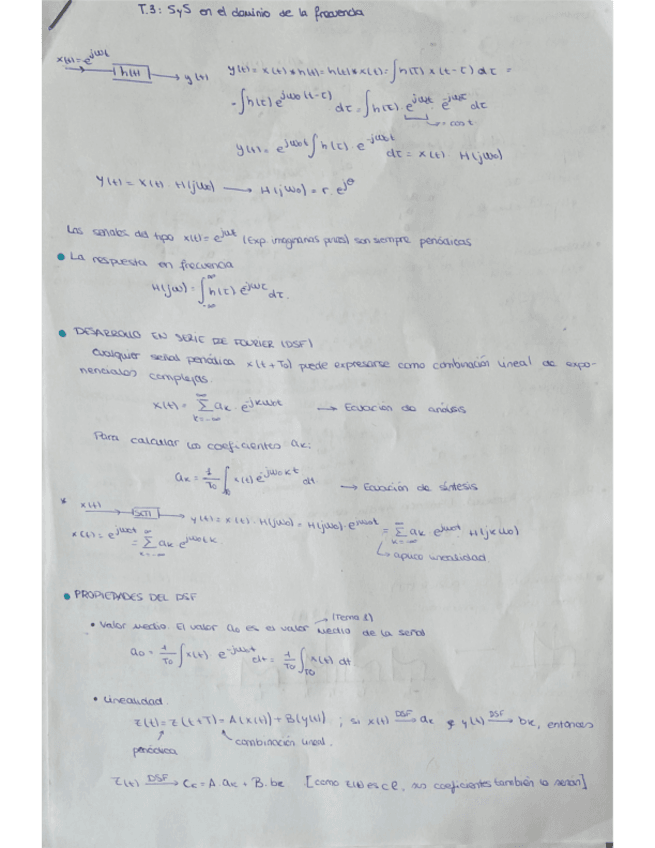 T.3: SyS en el dominio de la frecuencia
x(t)=e^jωt → h(t) → y(t)
y(t) = x(t) * h(t) = h(t) * x(t) = ∫h(τ) x(t-τ) dτ =
= ∫h(τ) e^jω₀(t-τ) dτ = ∫h(τ) · e^jω₀t · e^-jω₀τ dτ
→ cost.
y(t) = e^jω₀t ∫h(τ) · e^-jω₀t dτ = x(t) · H(jω₀)
y(t) = x(t) · H(jω₀) → H(jω₀) = r · e^jθ
Las señales del tipo x(t) = e^jωt (Exp. imaginarias puras) son siempre periódicas
• La respuesta en frecuencia
H(jω) = ∫_-∞^∞ h(τ) e^jωτ dτ.
• DESARROLLO EN SERIE DE FOURIER (DSF)
Cualquier señal periódica x(t+T₀) puede expresarse como combinación lineal de expo-
nenciales complejas.
x(t) = Σ_k=-∞^∞ aₖ · e^jkω₀t → Ecuación de análisis
Para calcular los coeficientes aₖ:
aₖ = 1/T₀ ∫ x(t) e^jω₀kt dt → Ecuación de síntesis
* x(t) → SLTI → y(t) = x(t) · H(jω₀) = H(jω₀) · e^jω₀t = Σ_k=-∞^∞ aₖ · e^jω₀t · H(jkω₀)
x(t) = e^jω₀t = Σ_k=-∞^∞ aₖ e^jω₀tk
↳ aplico linealidad
• PROPIEDADES DEL DSF
→ (Tema 1)
• Valor medio. El valor a₀ es el valor medio de la señal
a₀ = 1/T₀ ∫x(t) e^-jω₀t dt = 1/T₀ ∫_T₀ x(t) dt
• Linealidad.
z(t) = z(t+T) = A(x(t)) + B(y(t)) ; si x(t) DSF→ aₖ y y(t) DSF→ bₖ, entonces
periódica
combinación lineal.
z(t) DSF→ Cₖ = A·aₖ + B·bₖ [como z(t) es CL, sus coeficientes también lo serán]